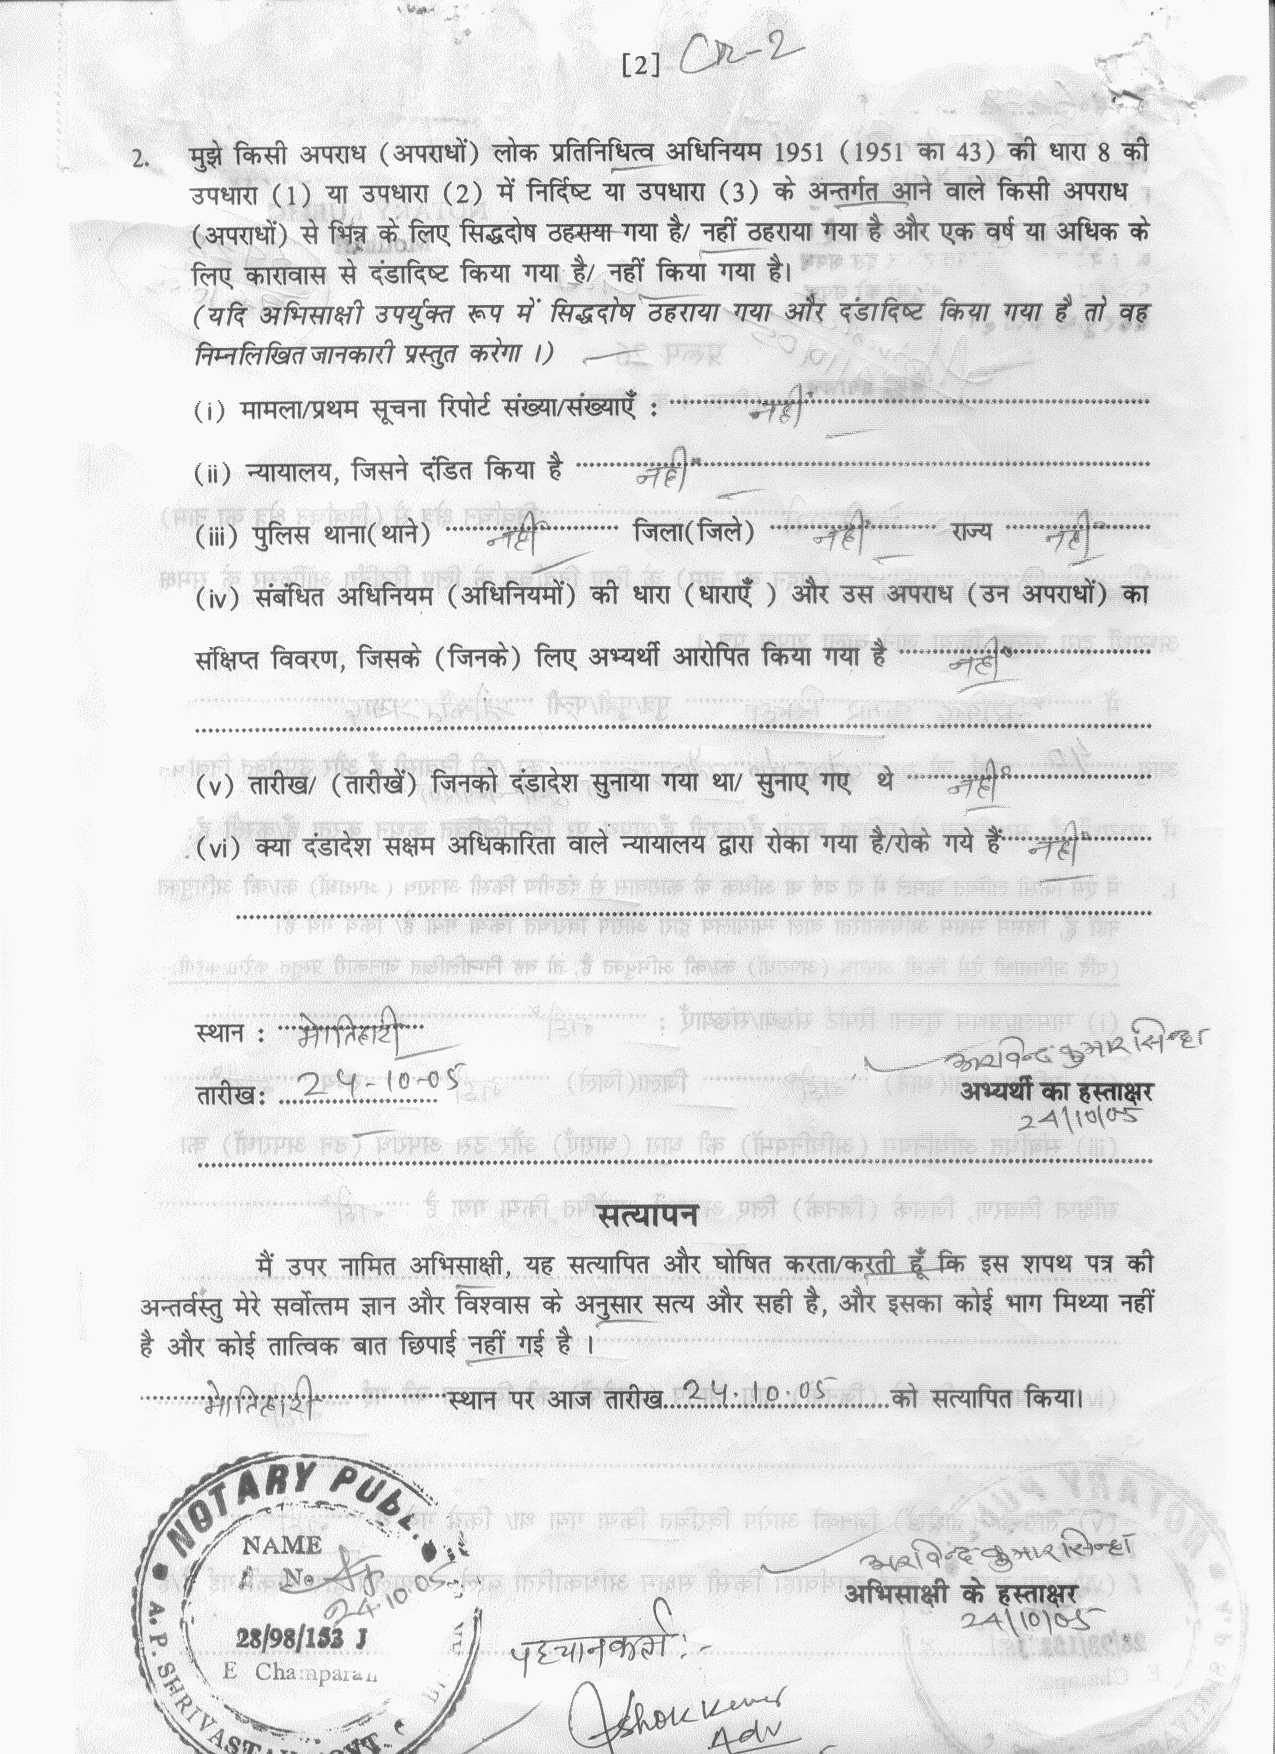 [2] CR-2
2. मुझे किसी अपराध (अपराधों) लोक प्रतिनिधित्व अधिनियम 1951 (1951 का 43) की धारा 8 की
उपधारा (1) या उपधारा (2) में निर्दिष्ट या उपधारा (3) के अन्तर्गत आने वाले किसी अपराध
(अपराधों) से भिन्न के लिए सिद्धदोष ठहराया गया है/ नहीं ठहराया गया है और एक वर्ष या अधिक के
लिए कारावास से दंडादिष्ट किया गया है/ नहीं किया गया है।
(यदि अभिसाक्षी उपर्युक्त रूप में सिद्धदोष ठहराया गया और दंडादिष्ट किया गया है तो वह
निम्नलिखित जानकारी प्रस्तुत करेगा ।)
(i) मामला/प्रथम सूचना रिपोर्ट संख्या/संख्याएँ : नहीं
(ii) न्यायालय, जिसने दंडित किया है नहीं
(iii) पुलिस थाना(थाने) नहीं जिला(जिले) नहीं राज्य नहीं
(iv) संबंधित अधिनियम (अधिनियमों) की धारा (धाराएँ ) और उस अपराध (उन अपराधों) का
संक्षिप्त विवरण, जिसके (जिनके) लिए अभ्यर्थी आरोपित किया गया है नहीं
(v) तारीख/ (तारीखें) जिनको दंडादेश सुनाया गया था/ सुनाए गए थे नहीं
(vi) क्या दंडादेश सक्षम अधिकारिता वाले न्यायालय द्वारा रोका गया है/रोके गये हैं नहीं
स्थान : मोतिहारी
अरविन्द कुमार सिन्हा
तारीख: 24-10-05
अभ्यर्थी का हस्ताक्षर
24/10/05
सत्यापन
मैं उपर नामित अभिसाक्षी, यह सत्यापित और घोषित करता/करती हूँ कि इस शपथ पत्र की
अन्तर्वस्तु मेरे सर्वोत्तम ज्ञान और विश्वास के अनुसार सत्य और सही है, और इसका कोई भाग मिथ्या नहीं
है और कोई तात्विक बात छिपाई नहीं गई है ।
मोतिहारी स्थान पर आज तारीख 24.10.05 को सत्यापित किया।
NOTARY PUBL
NAME
No.
24.10.05
28/98/153 J
E Champaran
A. P. SHRIVASTAVA
अरविन्द कुमार सिन्हा
अभिसाक्षी के हस्ताक्षर
24/10/05
पहचानकर्ता :-
Ashok Kumar
Adv